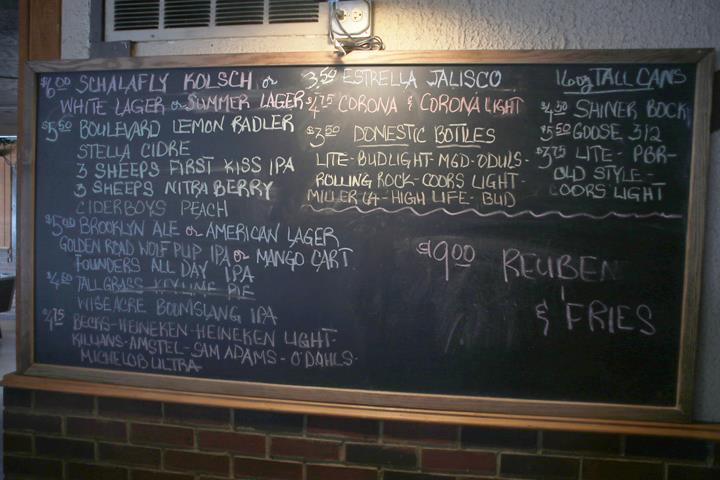 $6.00 SCHALAFLY KOLSCH or
WHITE LAGER or SUMMER LAGER
$5.50 BOULEVARD LEMON RADLER
STELLA CIDRE
3 SHEEPS FIRST KISS IPA
3 SHEEPS NITRA BERRY
CIDERBOYS PEACH
$5.00 BROOKLYN ALE or AMERICAN LAGER
GOLDEN ROAD WOLF PUP IPA or MANGO CART
FOUNDERS ALL DAY IPA
$4.50 TALLGRASS KEYLIME PIE
WISEACRE BOOMSLANG IPA
$4.75 BECKS-HEINEKEN-HEINEKEN LIGHT-
KILLIANS-AMSTEL-SAM ADAMS-O'DAHLS-
MICHELOB ULTRA-
3.50 ESTRELLA JALISCO
$4.75 CORONA & CORONA LIGHT
$3.50 DOMESTIC BOTTLES
LITE-BUDLIGHT-MGD-ODULS-
ROLLING ROCK-COORS LIGHT-
MILLER 64-HIGH LIFE-BUD
16oz TALL CANS
$4.50 SHINER BOCK
$5.50 GOOSE 312
$3.75 LITE-PBR-
OLD STYLE-
COORS LIGHT
$9.00 REUBEN
& FRIES